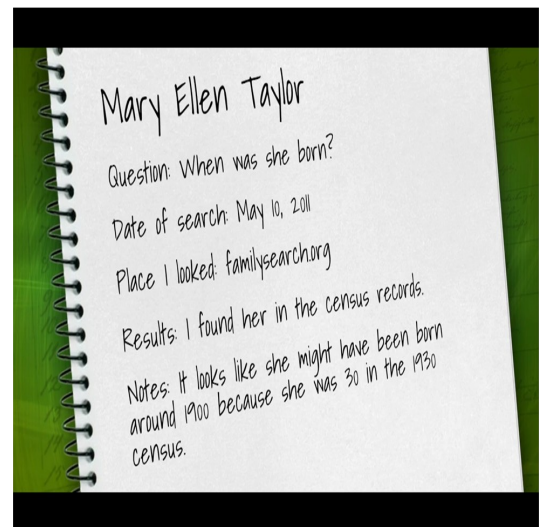 Mary Ellen Taylor
Question: When was she born?
Date of search: May 10, 2011
Place I looked: familysearch.org
Results: I found her in the census records.
Notes: It looks like she might have been born
around 1900 because she was 30 in the 1930
census.